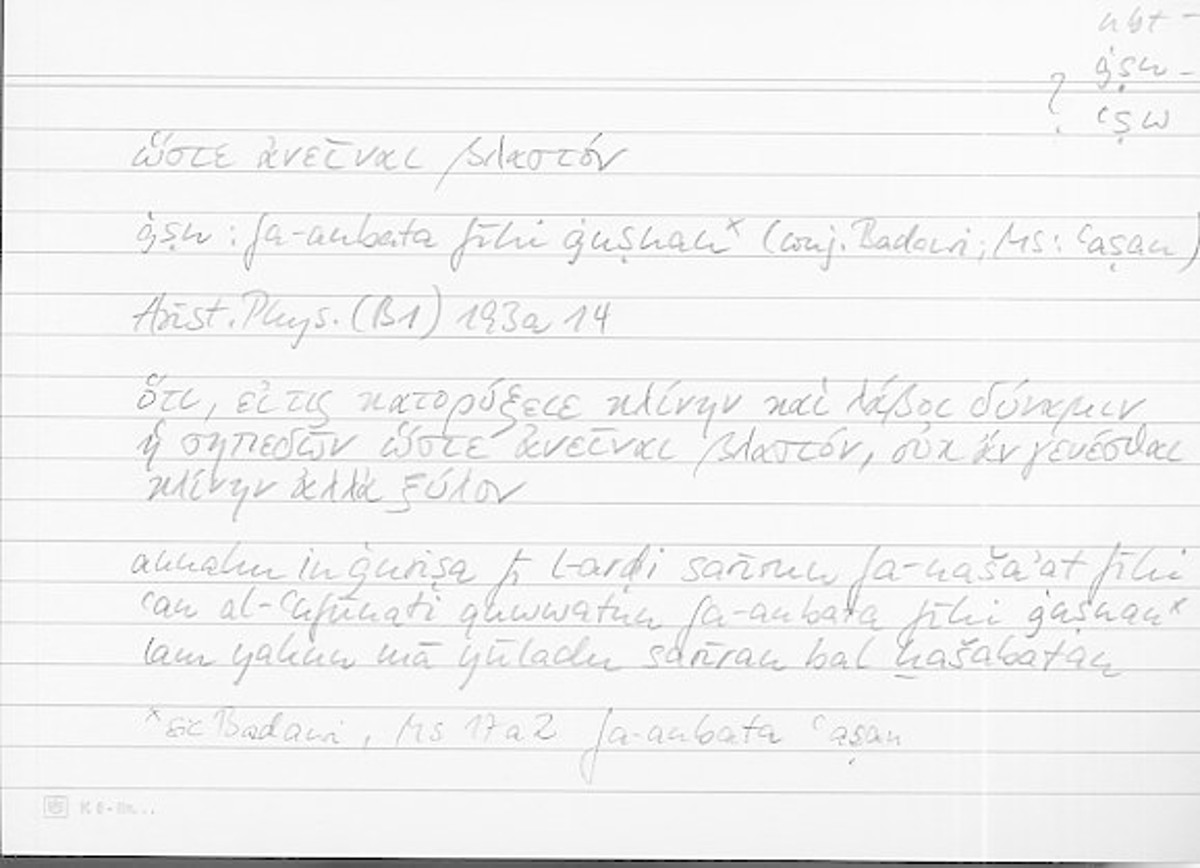 nbt -
ġṣn -
? ʿṣw
ὥστε ἀνεῖναι βλαστόν
ġṣn : fa-anbata fīhi ġuṣnanˣ (conj. Badawi; Ms: ʿaṣan)
Arist. Phys. (B1) 193a 14
ὅτι, εἴ τις κατορύξειε κλίνην καὶ λάβοι δύναμιν
ἡ σηπεδὼν ὥστε ἀνεῖναι βλαστόν, οὐκ ἂν γενέσθαι
κλίνην ἀλλὰ ξύλον
annahu in ġuriṣa fī l-arḍi sarīrun fa-naša'at fīhi
ʿan al-ʿufūnati quwwatun fa-anbata fīhi ġuṣnanˣ
lam yakun mā yūladu sarīran bal ḫašabatan
ˣ sic Badawi, Ms 17a2 fa-anbata ʿaṣan